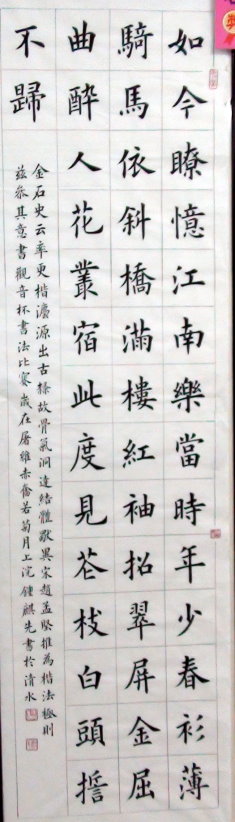 如今瞭憶江南樂當時年少春衫薄
騎馬依斜橋滿樓紅袖招翠屏金屈
曲醉人花叢宿此度見花枝白頭誓
不歸
金石史云率更楷灋源出古隸故骨氣洞達結體獨異宋趙孟堅推為楷法極則
茲參其意書觀音杯書法比賽歲在屠維赤奮若菊月上浣鍾麒先書於清水